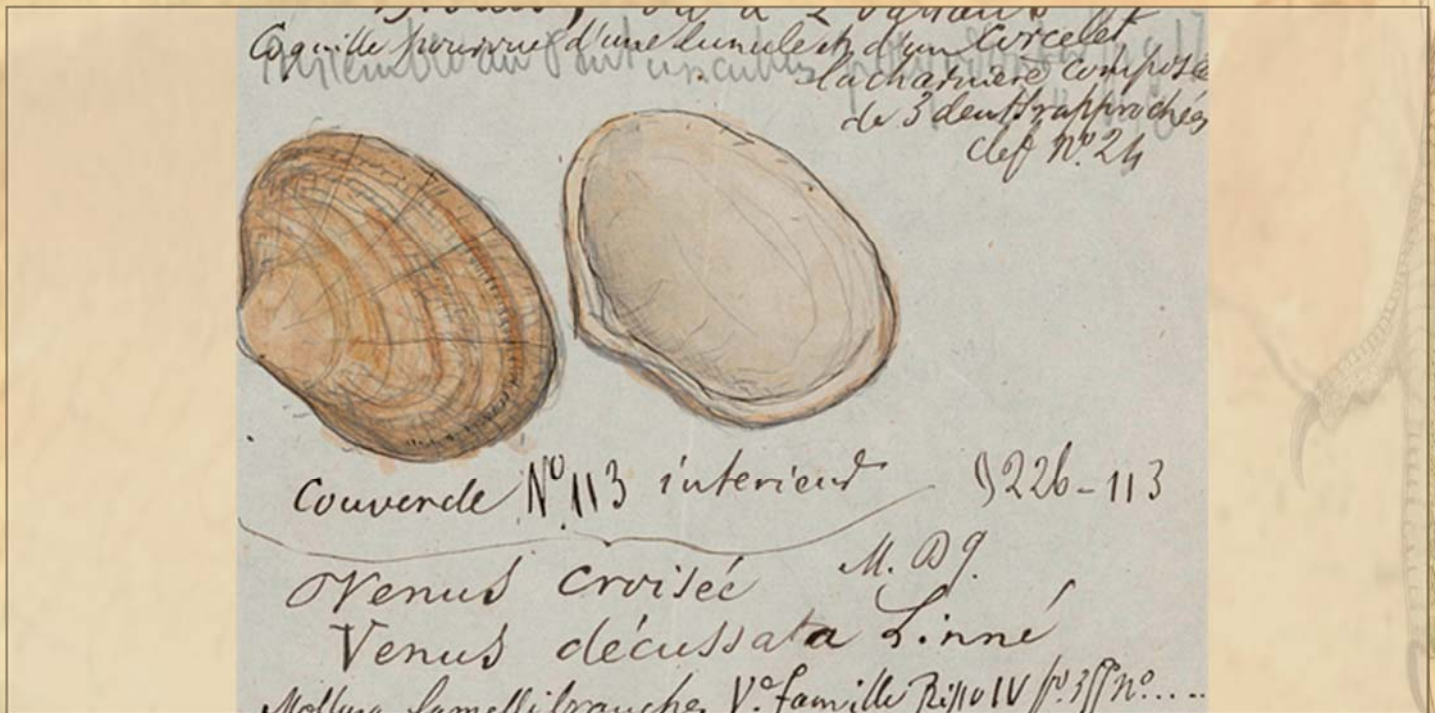 Coquille pourvue d'une lunule et d'un Corcelet
la charniere composée
de 3 dents rapprochées
clef No. 24
Couvercle No. 113 interieur
§ 226 - 113
Venus croisée M. D g.
Venus décussata Linné
Mollusq. Lamellibranches V.e famille Risso IV